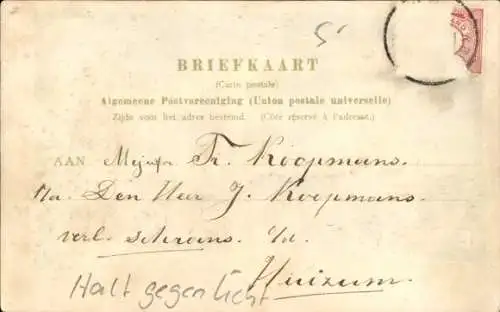 5
BRIEFKAART
(Carte postale)
Algemeene Postvereeniging (Union postale universelle)
Zijde voor het adres bestemd. (Côté réservé à l'adresse.)
AAN Mejufr Tr. Koopmans.
p/a Den Heer J. Koopmans.
verl. schrans. b/d.
Huizum.
Halt gegen licht